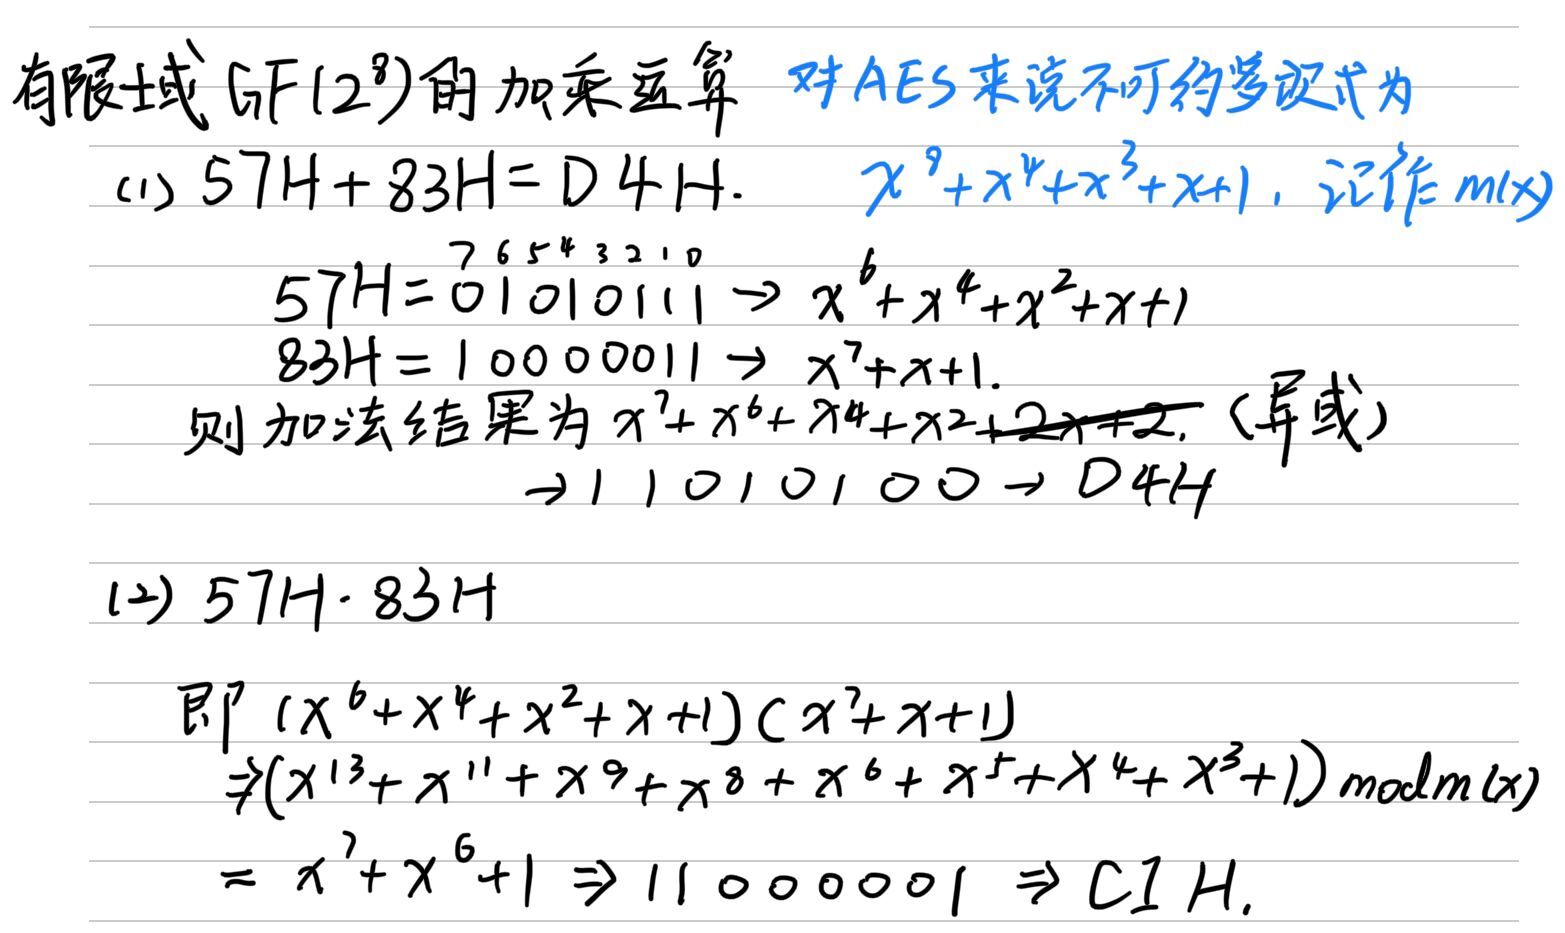 有限域 GF(2⁸)的加乘运算 对AES来说不可约多项式为
(1) 57H+83H=D4H. x⁸+x⁴+x³+x+1, 记作 m(x)
7 6 5 4 3 2 1 0
57H=01010111→ x⁶+x⁴+x²+x+1
83H=10000011→ x⁷+x+1.
则加法结果为 x⁷+x⁶+x4+x2+2x+2. (异或)
→11010100→D4H
(2) 57H·83H
即 (x⁶+x⁴+x²+x+1)(x⁷+x+1)
⇒(x¹³+x¹¹+x⁹+x⁸+x⁶+x⁵+x⁴+x³+1) mod m(x)
= x⁷+x⁶+1 ⇒11000001 ⇒ C1H.